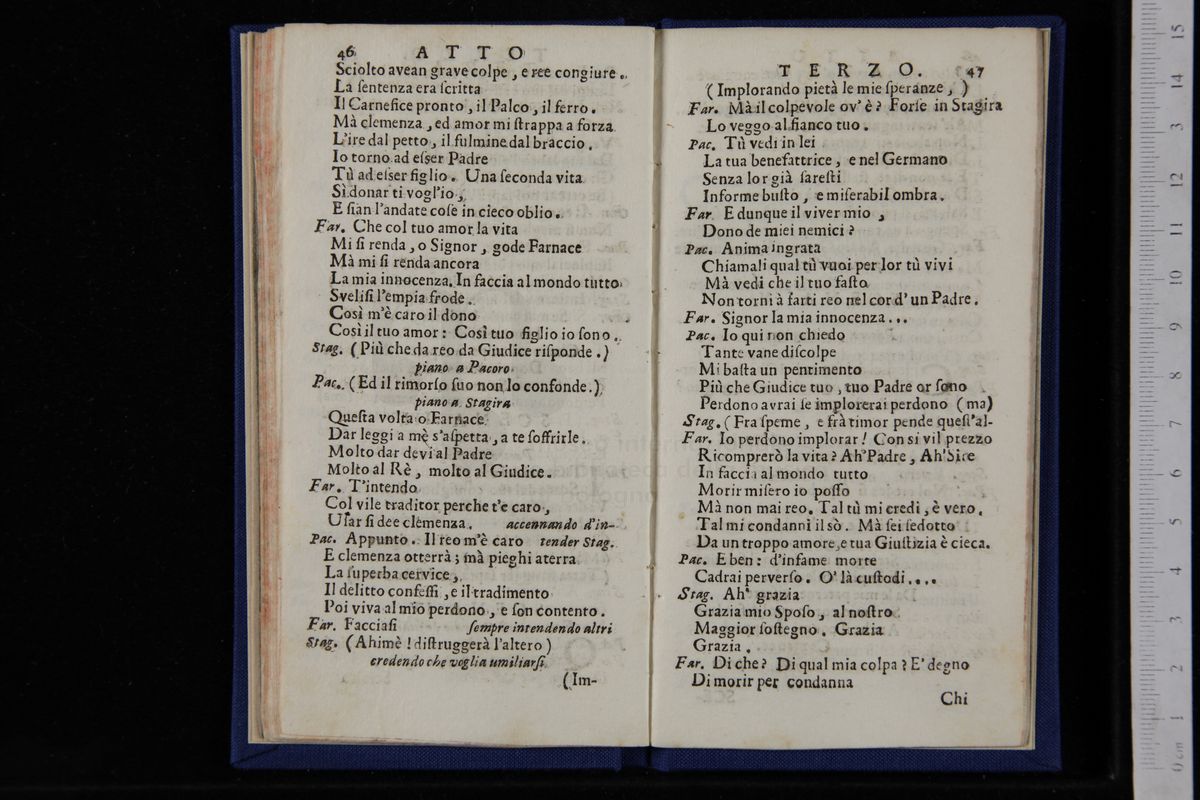 46 ATTO
Sciolto avean grave colpe, e ree congiure.
La ſentenza era ſcritta
Il Carnefice pronto, il Palco, il ferro.
Mà clemenza, ed amor mi ſtrappa a forza
L'ire dal petto, il fulmine dal braccio.
Io torno ad eſser Padre
Tù ad eſser figlio. Una ſeconda vita
Sì donar ti vogl'io;
E ſian l'andate coſe in cieco oblio.
Far. Che col tuo amor la vita
Mi ſi renda, o Signor, gode Farnace
Mà mi ſi renda ancora
La mia innocenza. In faccia al mondo tutto
Sveliſi l'empia frode.
Così m'è caro il dono
Così il tuo amor: Così tuo figlio io ſono.
Stag. (Più che da reo da Giudice riſponde.)
piano a Pacoro
Pac. (Ed il rimorſo ſuo non lo confonde.)
piano a Stagira
Queſta volta o Farnace
Dar leggi a mè s'aſpetta, a te ſoffrirle.
Molto dar devi al Padre
Molto al Rè, molto al Giudice.
Far. T'intendo
Col vile traditor perche t'e caro,
Uſar ſi dee clemenza. accennando d'in-
Pac. Appunto. Il reo m'è caro tender Stag.
E clemenza otterrà; mà pieghi aterra
La ſuperba cervice,
Il delitto confeſſi, e il tradimento
Poi viva al mio perdono, e ſon contento.
Far. Facciaſi ſempre intendendo altri
Stag. (Ahimè! diſtruggerà l'altero)
credendo che voglia umiliarſi
(Im-
TERZO. 47
(Implorando pietà le mie ſperanze,)
Far. Mà il colpevole ov'è? Forſe in Stagira
Lo veggo al fianco tuo.
Pac. Tù vedi in lei
La tua benefattrice, e nel Germano
Senza lor già ſareſti
Informe buſto, e miſerabil ombra.
Far. E dunque il viver mio,
Dono de miei nemici?
Pac. Anima ingrata
Chiamali qual tù vuoi per lor tù vivi
Mà vedi che il tuo faſto
Non torni à farti reo nel cor d'un Padre.
Far. Signor la mia innocenza...
Pac. Io qui non chiedo
Tante vane diſcolpe
Mi baſta un pentimento
Più che Giudice tuo, tuo Padre or ſono
Perdono avrai ſe implorerai perdono (ma)
Stag. (Fra ſpeme, e frà timor pende queſt'al-
Far. Io perdono implorar! Con sì vil prezzo
Ricomprerò la vita? Ah'Padre, Ah'Sire
In faccia al mondo tutto
Morir miſero io poſſo
Mà non mai reo. Tal tù mi credi, è vero.
Tal mi condanni il sò. Mà ſei ſedotto
Da un troppo amore, e tua Giuſtizia è cieca.
Pac. E ben: d'infame morte
Cadrai perverſo. O' là cuſtodi....
Stag. Ah' grazia
Grazia mio Spoſo, al noſtro
Maggior ſoſtegno. Grazia
Grazia.
Far. Di che? Di qual mia colpa? E' degno
Di morir per condanna
Chi